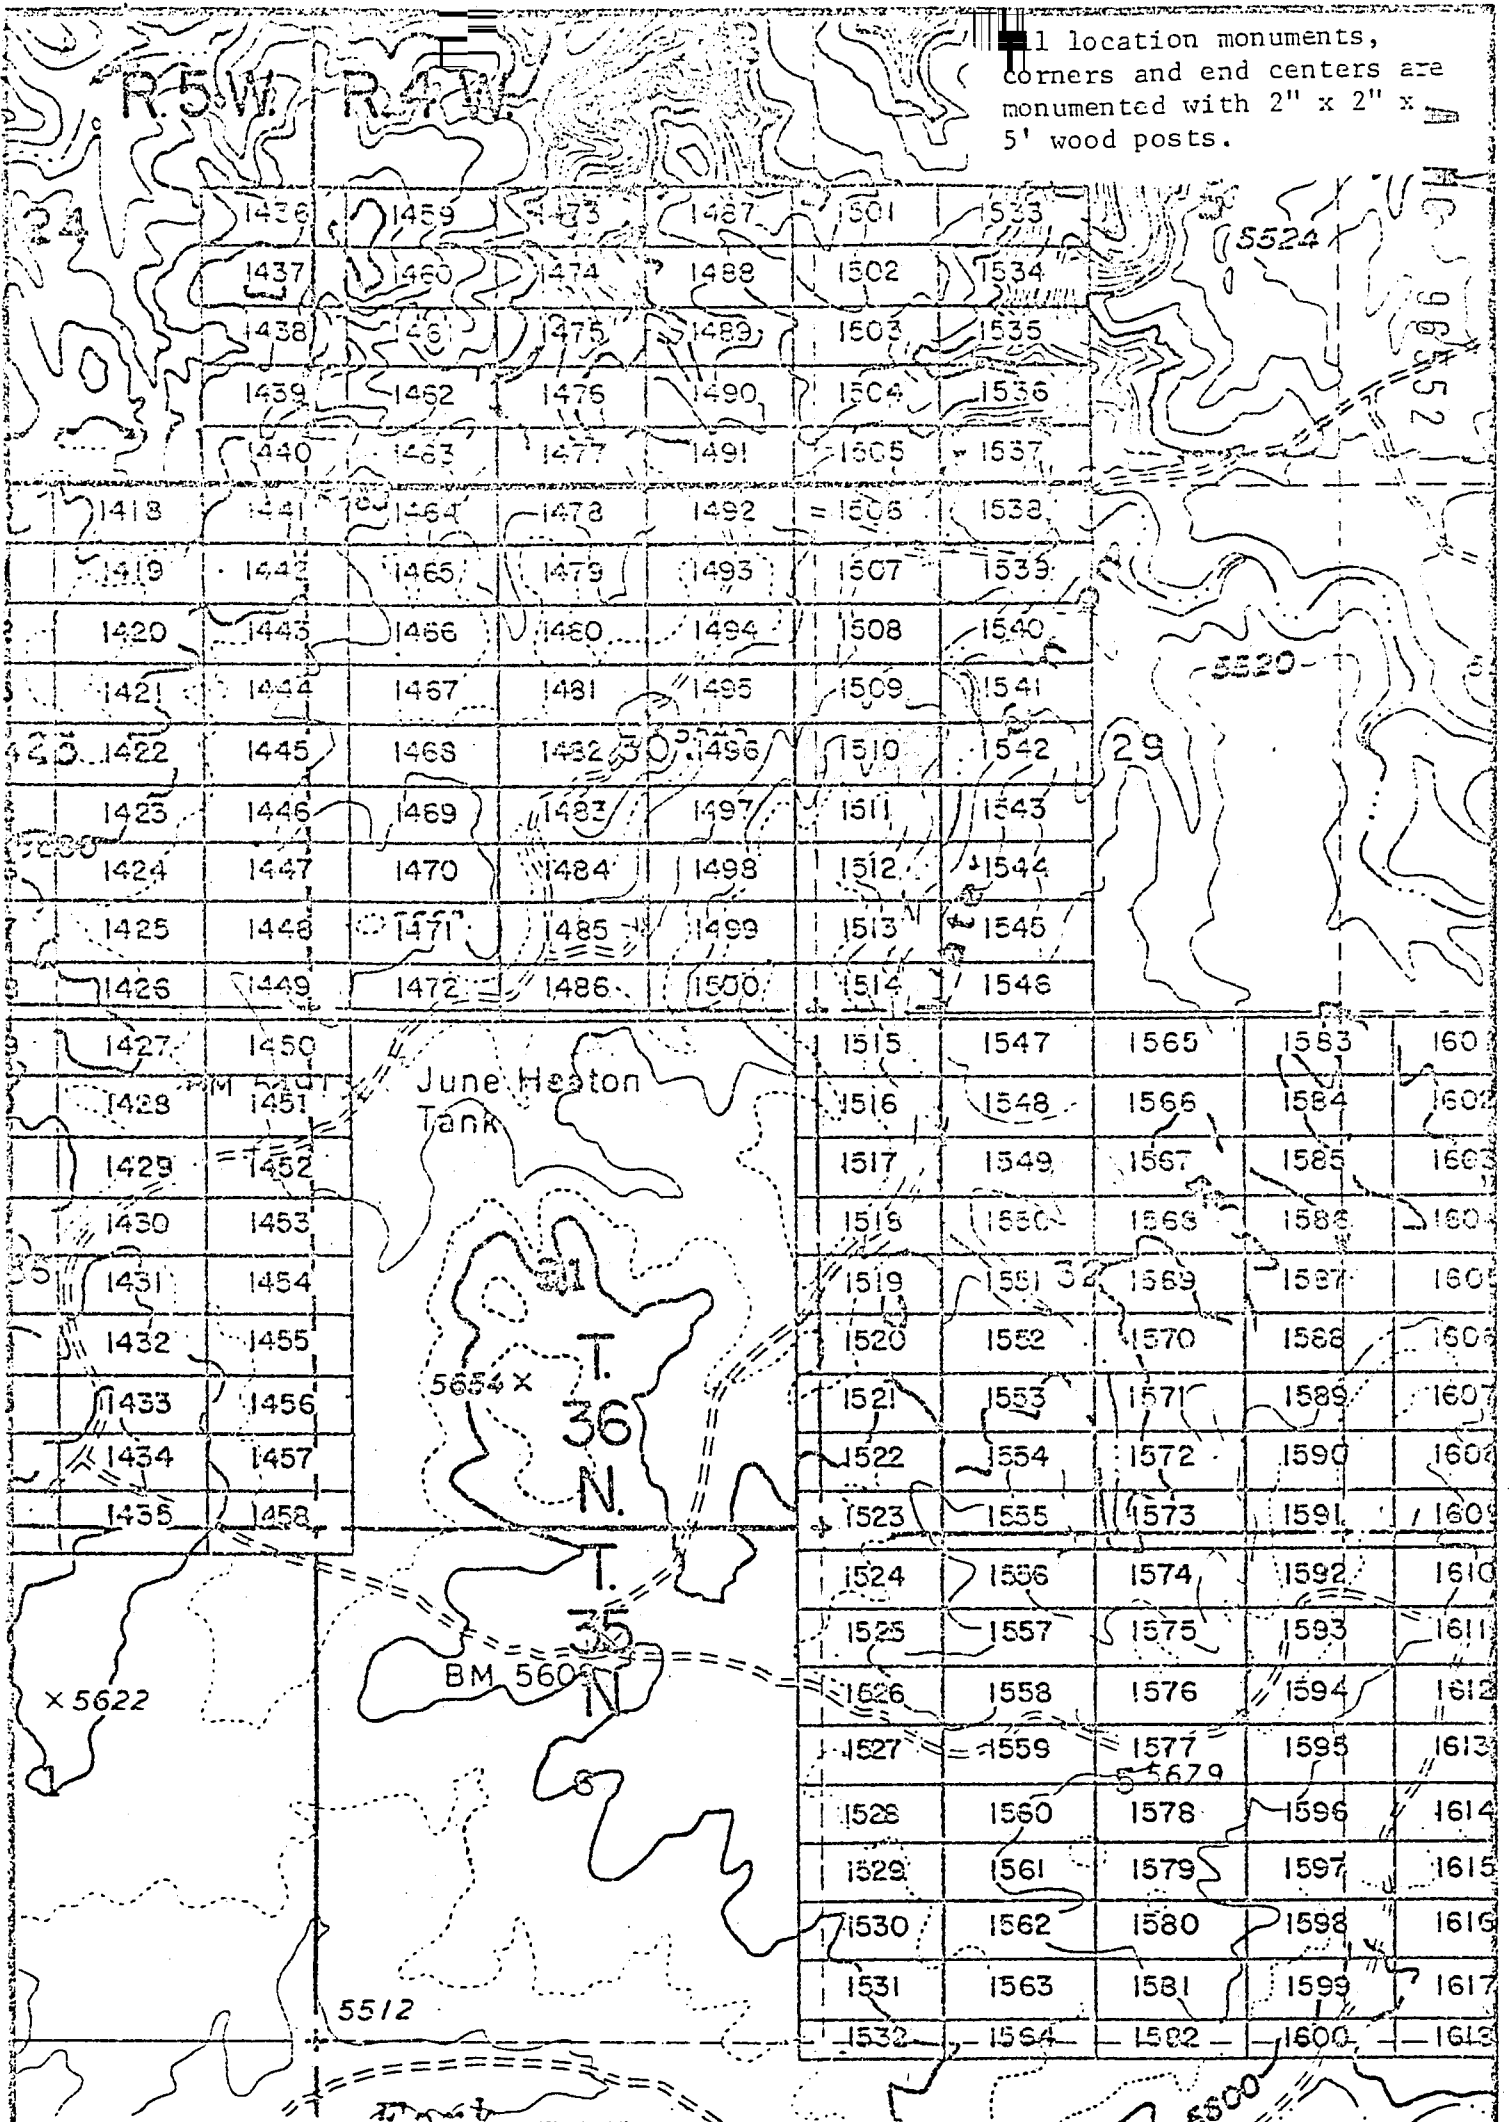 ll location monuments,
corners and end centers are
monumented with 2" x 2" x
5' wood posts.
R.5W. R.4W.
24 1436 1459 1473 1487 1501 1533
5524
1437 1460 1474 1488 1502 1534
1438 1461 1475 1489 1503 1535
1439 1462 1476 1490 1504 1536
1440 1463 1477 1491 1505 1537
1418 1441 1464 1478 1492 1506 1538
1419 1442 1465 1479 1493 1507 1539
1420 1443 1466 1480 1494 1508 1540
5520
1421 1444 1467 1481 1495 1509 1541
1422 1445 1468 1482 30 1496 1510 1542 29
1423 1446 1469 1483 1497 1511 1543
1424 1447 1470 1484 1498 1512 1544
1425 1448 1471 1485 1499 1513 1545
1426 1449 1472 1486 1500 1514 1546
1427 1450 1515 1547 1565 1583 160
June Heaton
Tank
1428 1451 1516 1548 1566 1584 1602
1429 1452 1517 1549 1567 1585 1603
1430 1453 1518 1550 1568 1586 160
31
1431 1454 1519 1551 32 1569 1587 160
1432 1455 1520 1552 1570 1588 160
T.
36
N.
5654 ×
1433 1456 1521 1553 1571 1589 1607
1434 1457 1522 1554 1572 1590 160
1435 1458 1523 1555 1573 1591 160
T.
35
N
1524 1556 1574 1592 1610
1525 1557 1575 1593 1611
BM 560
× 5622
1526 1558 1576 1594 1612
1527 1559 1577 1595 1613
5 5679
6
1
1528 1560 1578 1596 1614
1529 1561 1579 1597 1615
1530 1562 1580 1598 1616
1531 1563 1581 1599 1617
5512
1532 1564 1582 1600 1618
5500